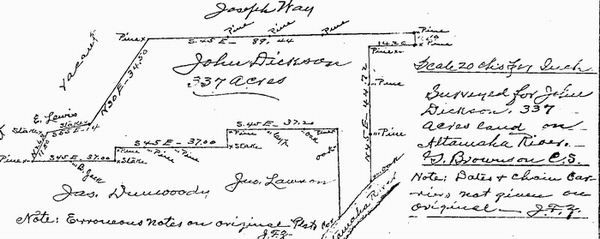 Joseph Way
Pine Pine Pine
Pine x S 45 E - 89.44 Pine
14.30 Pine
Vacant
John Dickson
337 Acres
Pine
N 30 E - 34.50
N 45 E - 44.72
Pine
Pine
Scale 20 chs per Inch
Surveyed for John
Dickson. 337
Acres Land on
Altamaha River. —
G. Brownson C.S.
Note: Dates & Chain Car-
riers not given on
original — J.F.Z.
E. Lewis
Stake Stake
S 45 E - 37.20
Pine Oak Oak
S 45 E - 37.00
Pine Pine Pine Stake
Pine x S 45 E - 37.00 Stake
Jas. Dunwoody
Jno. Lawson
Altamaha River
Note: Erroneous notes on original Plat
J.F.Z.